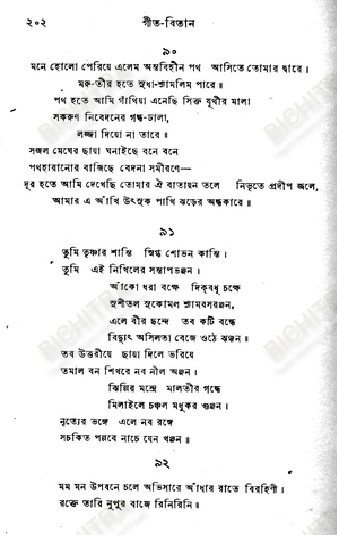 ২০২ গীত-বিতান
৯০
মনে হোলো পেরিয়ে এলেম অন্তবিহীন পথ আসিতে তোমার দ্বারে।
মরু-তীর হতে সুধা-শ্যামলিম পারে॥
পথ হতে আমি গাঁথিয়া এনেছি সিক্ত যূথীর মালা
সকরুণ নিবেদনের গন্ধ-ঢালা,
লজ্জা দিয়ো না তারে॥
সজল মেঘের ছায়া ঘনাইছে বনে বনে
পথহারানোর বাজিছে বেদনা সমীরণে—
দূর হতে আমি দেখেছি তোমার ঐ বাতায়ন তলে নিভৃতে প্রদীপ জ্বলে,
আমার এ আঁখি উৎসুক পাখি ঝড়ের অন্ধকারে॥
৯১
তুমি তৃষ্ণার শান্তি স্নিগ্ধ শোভন কান্তি।
তুমি এই নিখিলের সন্তাপভঞ্জন।
আঁকো ধরা বক্ষে দিক্‌বধূ চক্ষে
সুশীতল সুকোমল শ্যামরসরঞ্জন,
এলে বীর ছন্দে তব কটি বন্ধে
বিদ্যুৎ অসিলতা বেজে ওঠে ঝঞ্জন॥
তব উত্তরীয়ে ছায়া দিলে ভরিয়ে
তমাল বন শিখরে নব নীল অঞ্জন।
ঝিল্লির মন্দ্রে মালতীর গন্ধে
মিলাইলে চঞ্চল মধুকর গুঞ্জন।
নৃত্যের ভঙ্গে এলে নব রঙ্গে
সচকিত পল্লবে নাচে যেন খঞ্জন॥
৯২
মম মন উপবনে চলে অভিসারে আঁধার রাতে বিরহিণী॥
রক্তে তারি নূপুর বাজে রিনিরিনি॥
BICHITRA